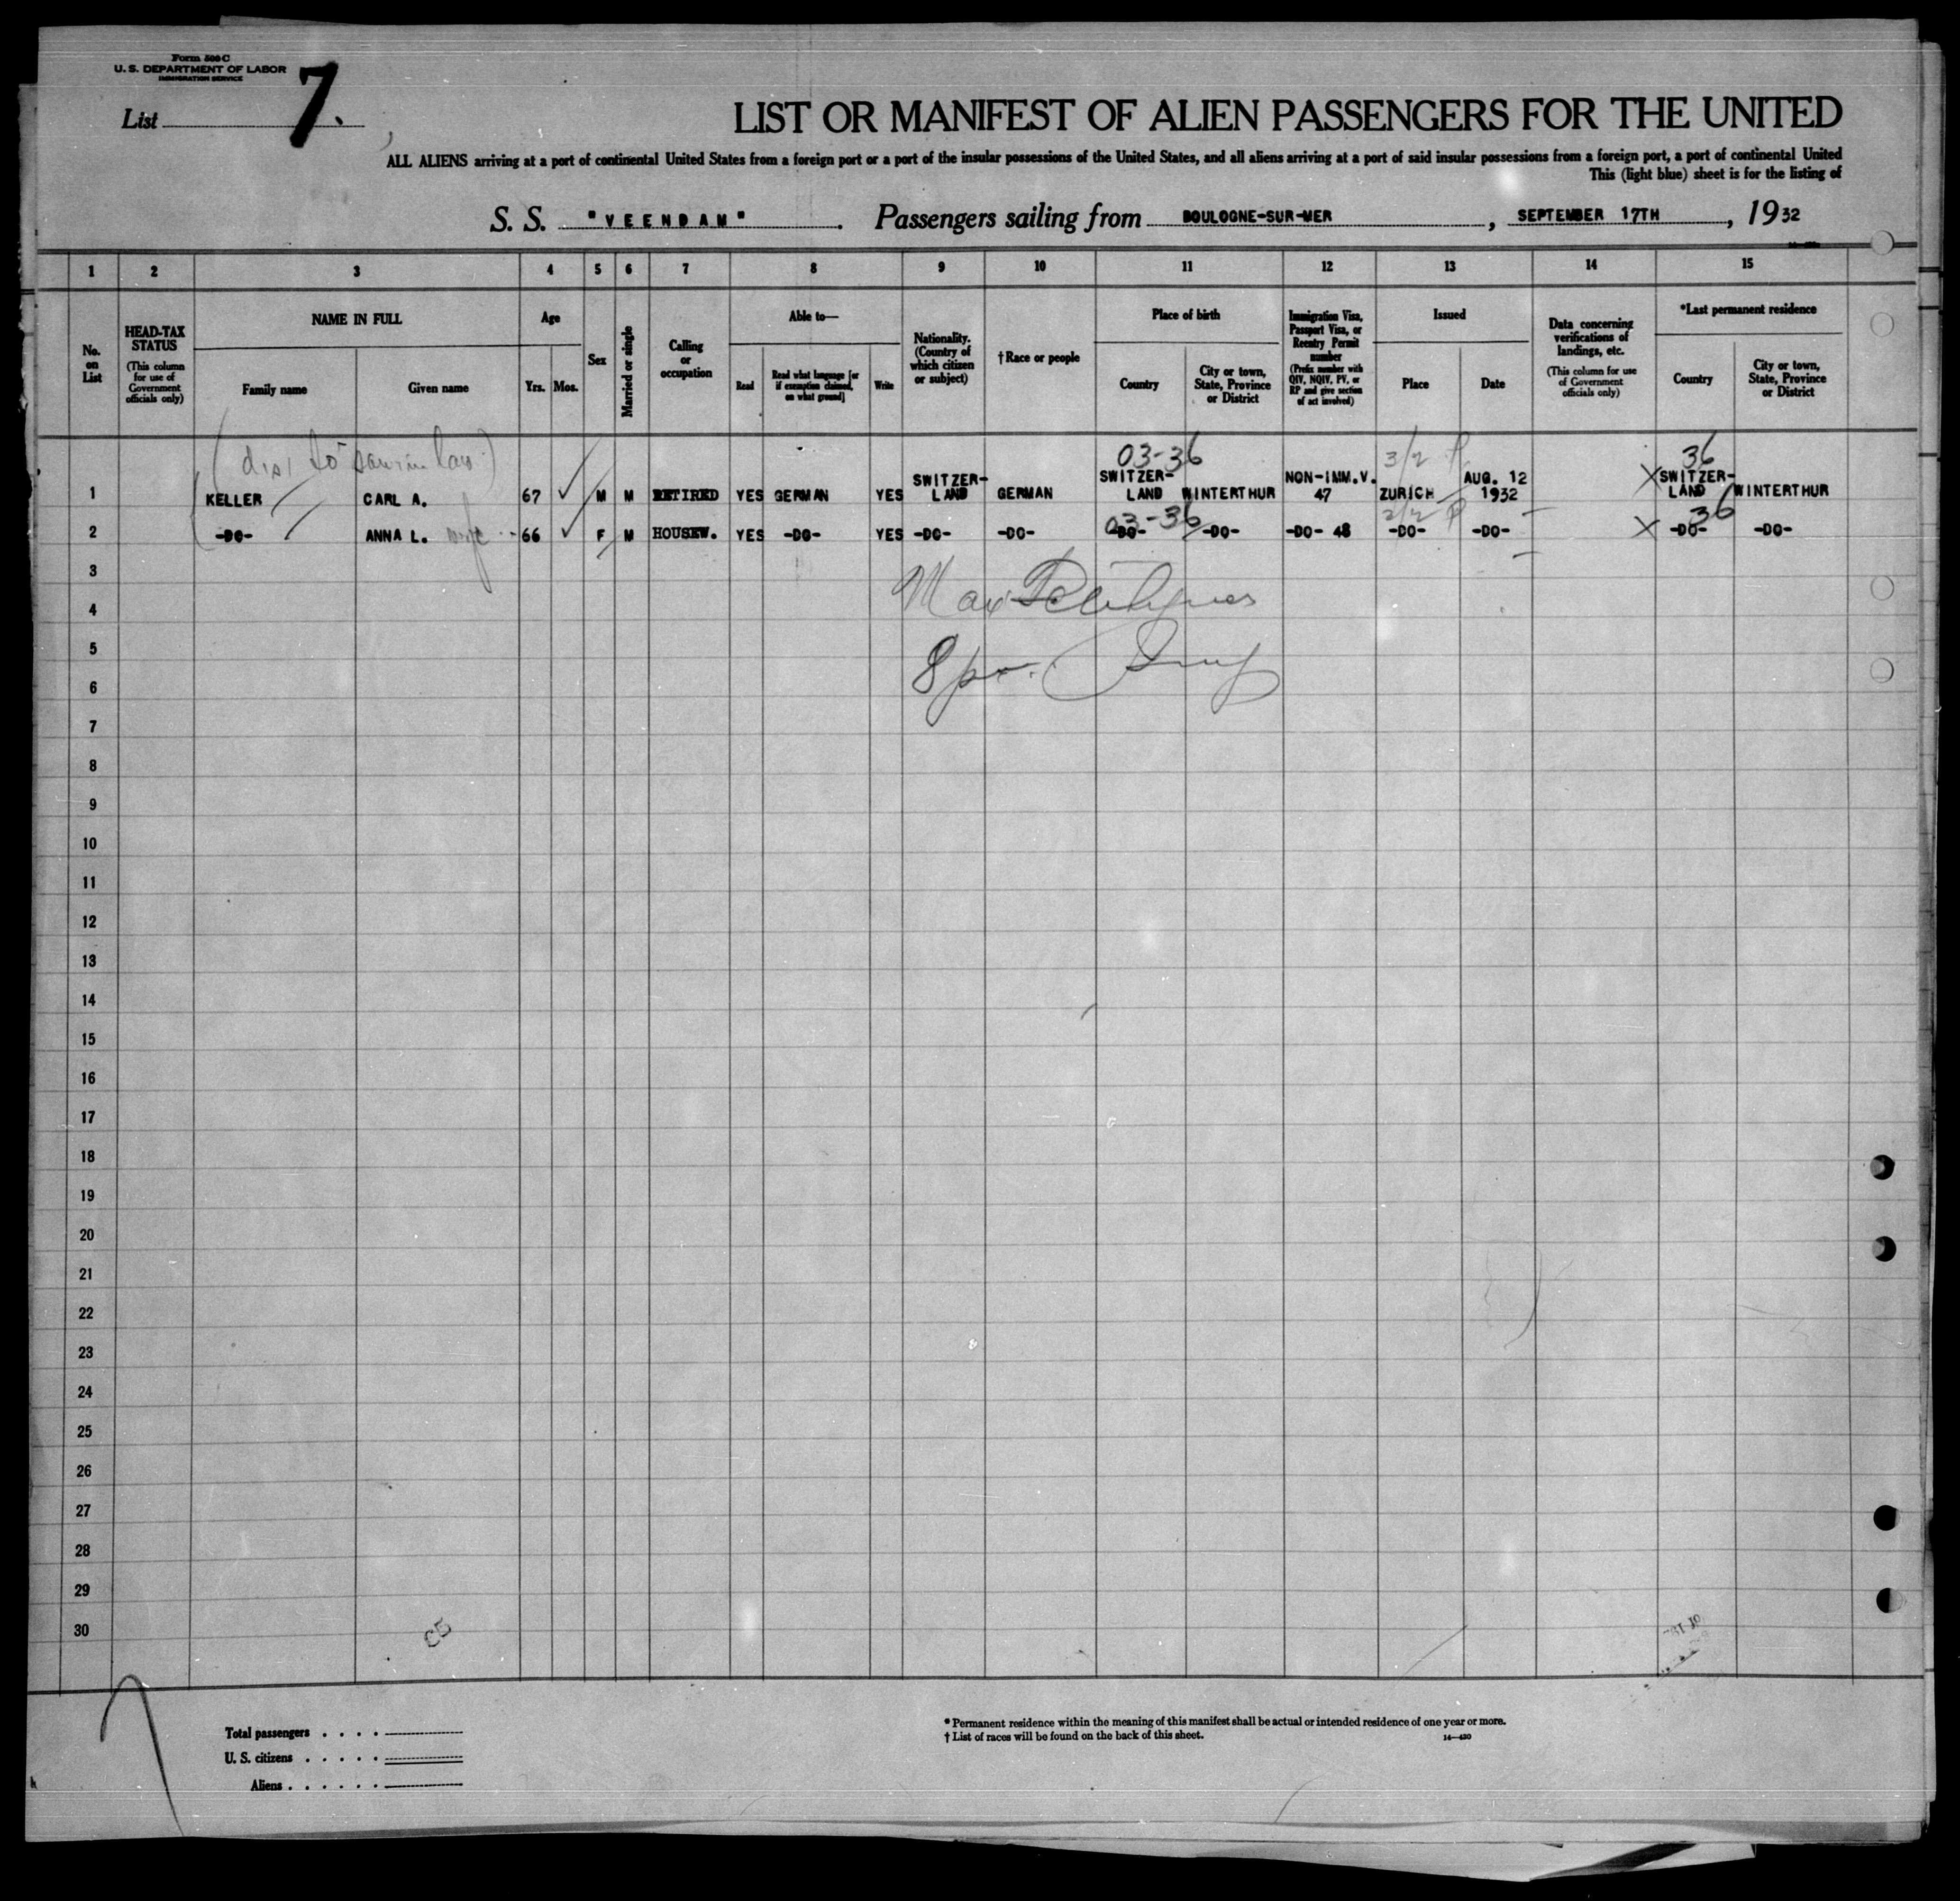 Form 500 C
U. S. DEPARTMENT OF LABOR
IMMIGRATION SERVICE
List 7.
LIST OR MANIFEST OF ALIEN PASSENGERS FOR THE UNITED
ALL ALIENS arriving at a port of continental United States from a foreign port or a port of the insular possessions of the United States, and all aliens arriving at a port of said insular possessions from a foreign port, a port of continental United
This (light blue) sheet is for the listing of
S. S. "VEENDAM". Passengers sailing from BOULOGNE-SUR-MER, SEPTEMBER 17TH, 1932
1 2 3 4 5 6 7 8 9 10 11 12 13 14 15
No. on List
HEAD-TAX STATUS
(This column for use of Government officials only)
NAME IN FULL
Family name
Given name
Age
Yrs. Mos.
Sex
Married or single
Calling or occupation
Able to—
Read
Read what language [or if exemption claimed, on what ground]
Write
Nationality. (Country of which citizen or subject)
†Race or people
Place of birth
Country
City or town, State, Province or District
Immigration Visa, Passport Visa, or Reentry Permit number
(Prefix number with QIV, NQIV, PV, or RP and give section of act involved)
Issued
Place
Date
Data concerning verifications of landings, etc.
(This column for use of Government officials only)
*Last permanent residence
Country
City or town, State, Province or District
03-36 3/2 P 36
1 KELLER CARL A. 67 M M RETIRED YES GERMAN YES SWITZER-LAND GERMAN SWITZER-LAND WINTERTHUR NON-IMM.V. 47 ZURICH AUG. 12 1932 SWITZER-LAND WINTERTHUR
03-36 2/2 P 36
2 -DO- ANNA L. wife 66 F M HOUSEW. YES -DO- YES -DO- -DO- -DO- -DO- -DO- 48 -DO- -DO- -DO- -DO-
3
4 Max
5
6
7
8
9
10
11
12
13
14
15
16
17
18
19
20
21
22
23
24
25
26
27
28
29
30
Total passengers . . . .
U. S. citizens . . . . .
Aliens . . . . . .
* Permanent residence within the meaning of this manifest shall be actual or intended residence of one year or more.
† List of races will be found on the back of this sheet.
14—430